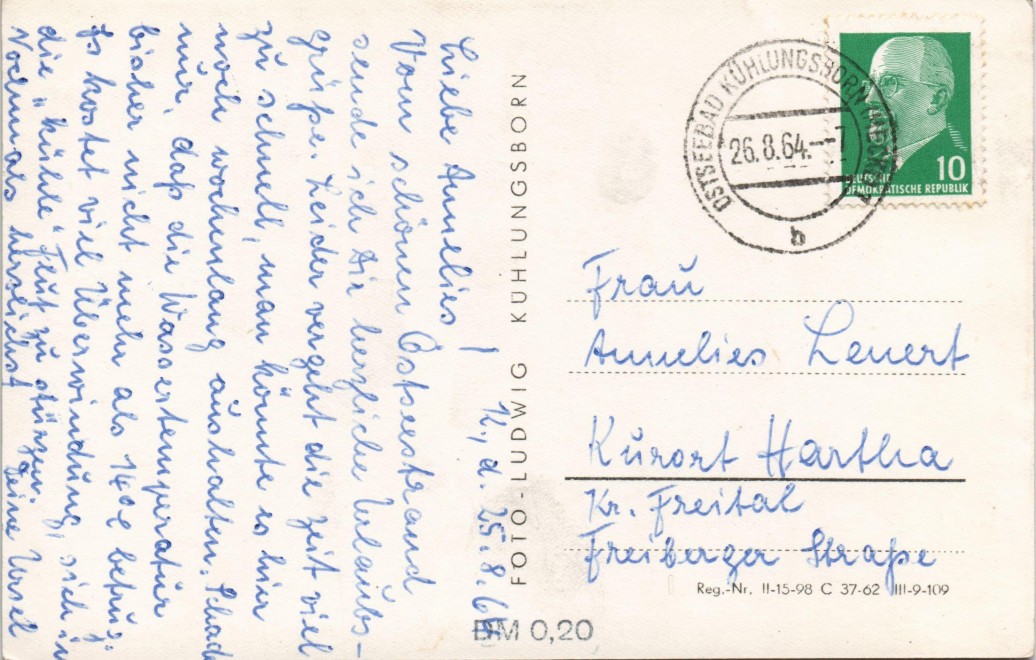 K., d. 25.8.64
Liebe Annelies!
Vom schönen Ostseestrand
sende ich Dir herzliche Urlaubs-
grüße. Leider vergeht die Zeit viel
zu schnell, man könnte es hier
noch wochenlang aushalten. Schade
nur, daß die Wassertemperatur
bisher nicht mehr als 14° betrug.
Es kostet viel Überwindung, sich in
die „kühle“ Flut zu stürzen.
Nochmals herzlichst Deine Ursel
FOTO-LUDWIG KÜHLUNGSBORN
OSTSEEBAD KÜHLUNGSBORN
26.8.64.--7
b
10
DEUTSCHE
DEMOKRATISCHE REPUBLIK
Frau
Annelies Lenert
Kurort Hartha
Kr. Freital
Freiberger Straße
Reg.-Nr. II-15-98 C 37-62 III-9-109
DM 0,20